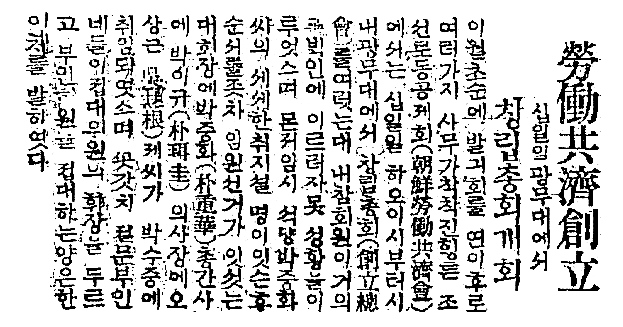 勞働共濟創立
십일일광무대에서
창립총회개회
이월초순에 발긔회를 연이후로
여러가지 사무가착착진힝듼 조
선로동공제회(朝鮮勞働共濟會)
에서는 십일일 하오이시부터시
내광무대에서 창립총회(創立總
會)를여럿는대 내참회원이거의
빅인에 이르러자못 성황을이
루엇스며 몬저임시 석댱박중화
씨의 세세한취지설 명이잇슨후
순서를조차 임원선거가 잇섯는
대회장에박중화(朴重華)총간사
에 박이규(朴珥圭) 의사장에오
상근 根)제씨가 박수중에
취임되엿스며 꼿갓치 부인
네들이접대위원의 휘장을 두르
고 부인 원을 접대하는양은한
이채를 발하엿다